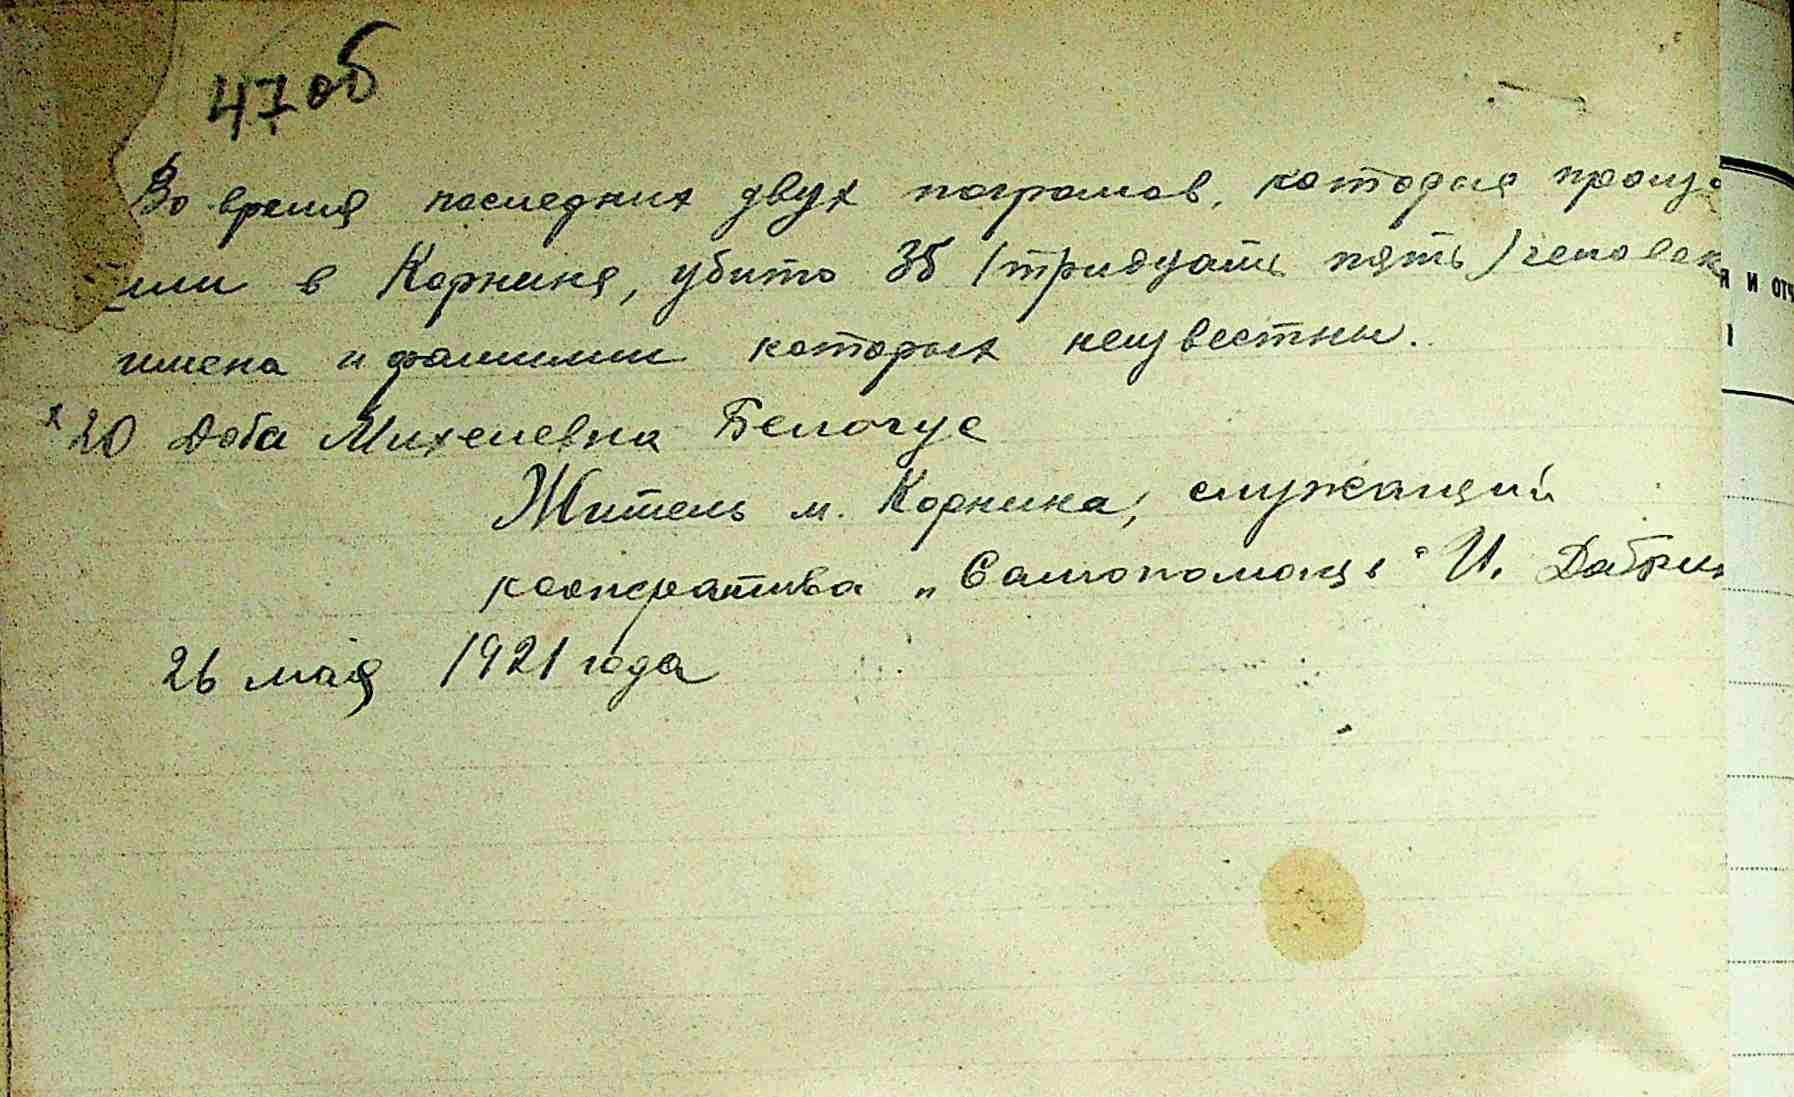 47 об
Во время последних двух погромов, которые произо
шли в Корнине, убито 35 (тридцать пять) человек
имена и фамилии которых неизвестны.
x 20 Доба Михелевна Белогус
Житель м. Корнина, служащий
кооператива „Самопомощь" И.
26 мая 1921 года